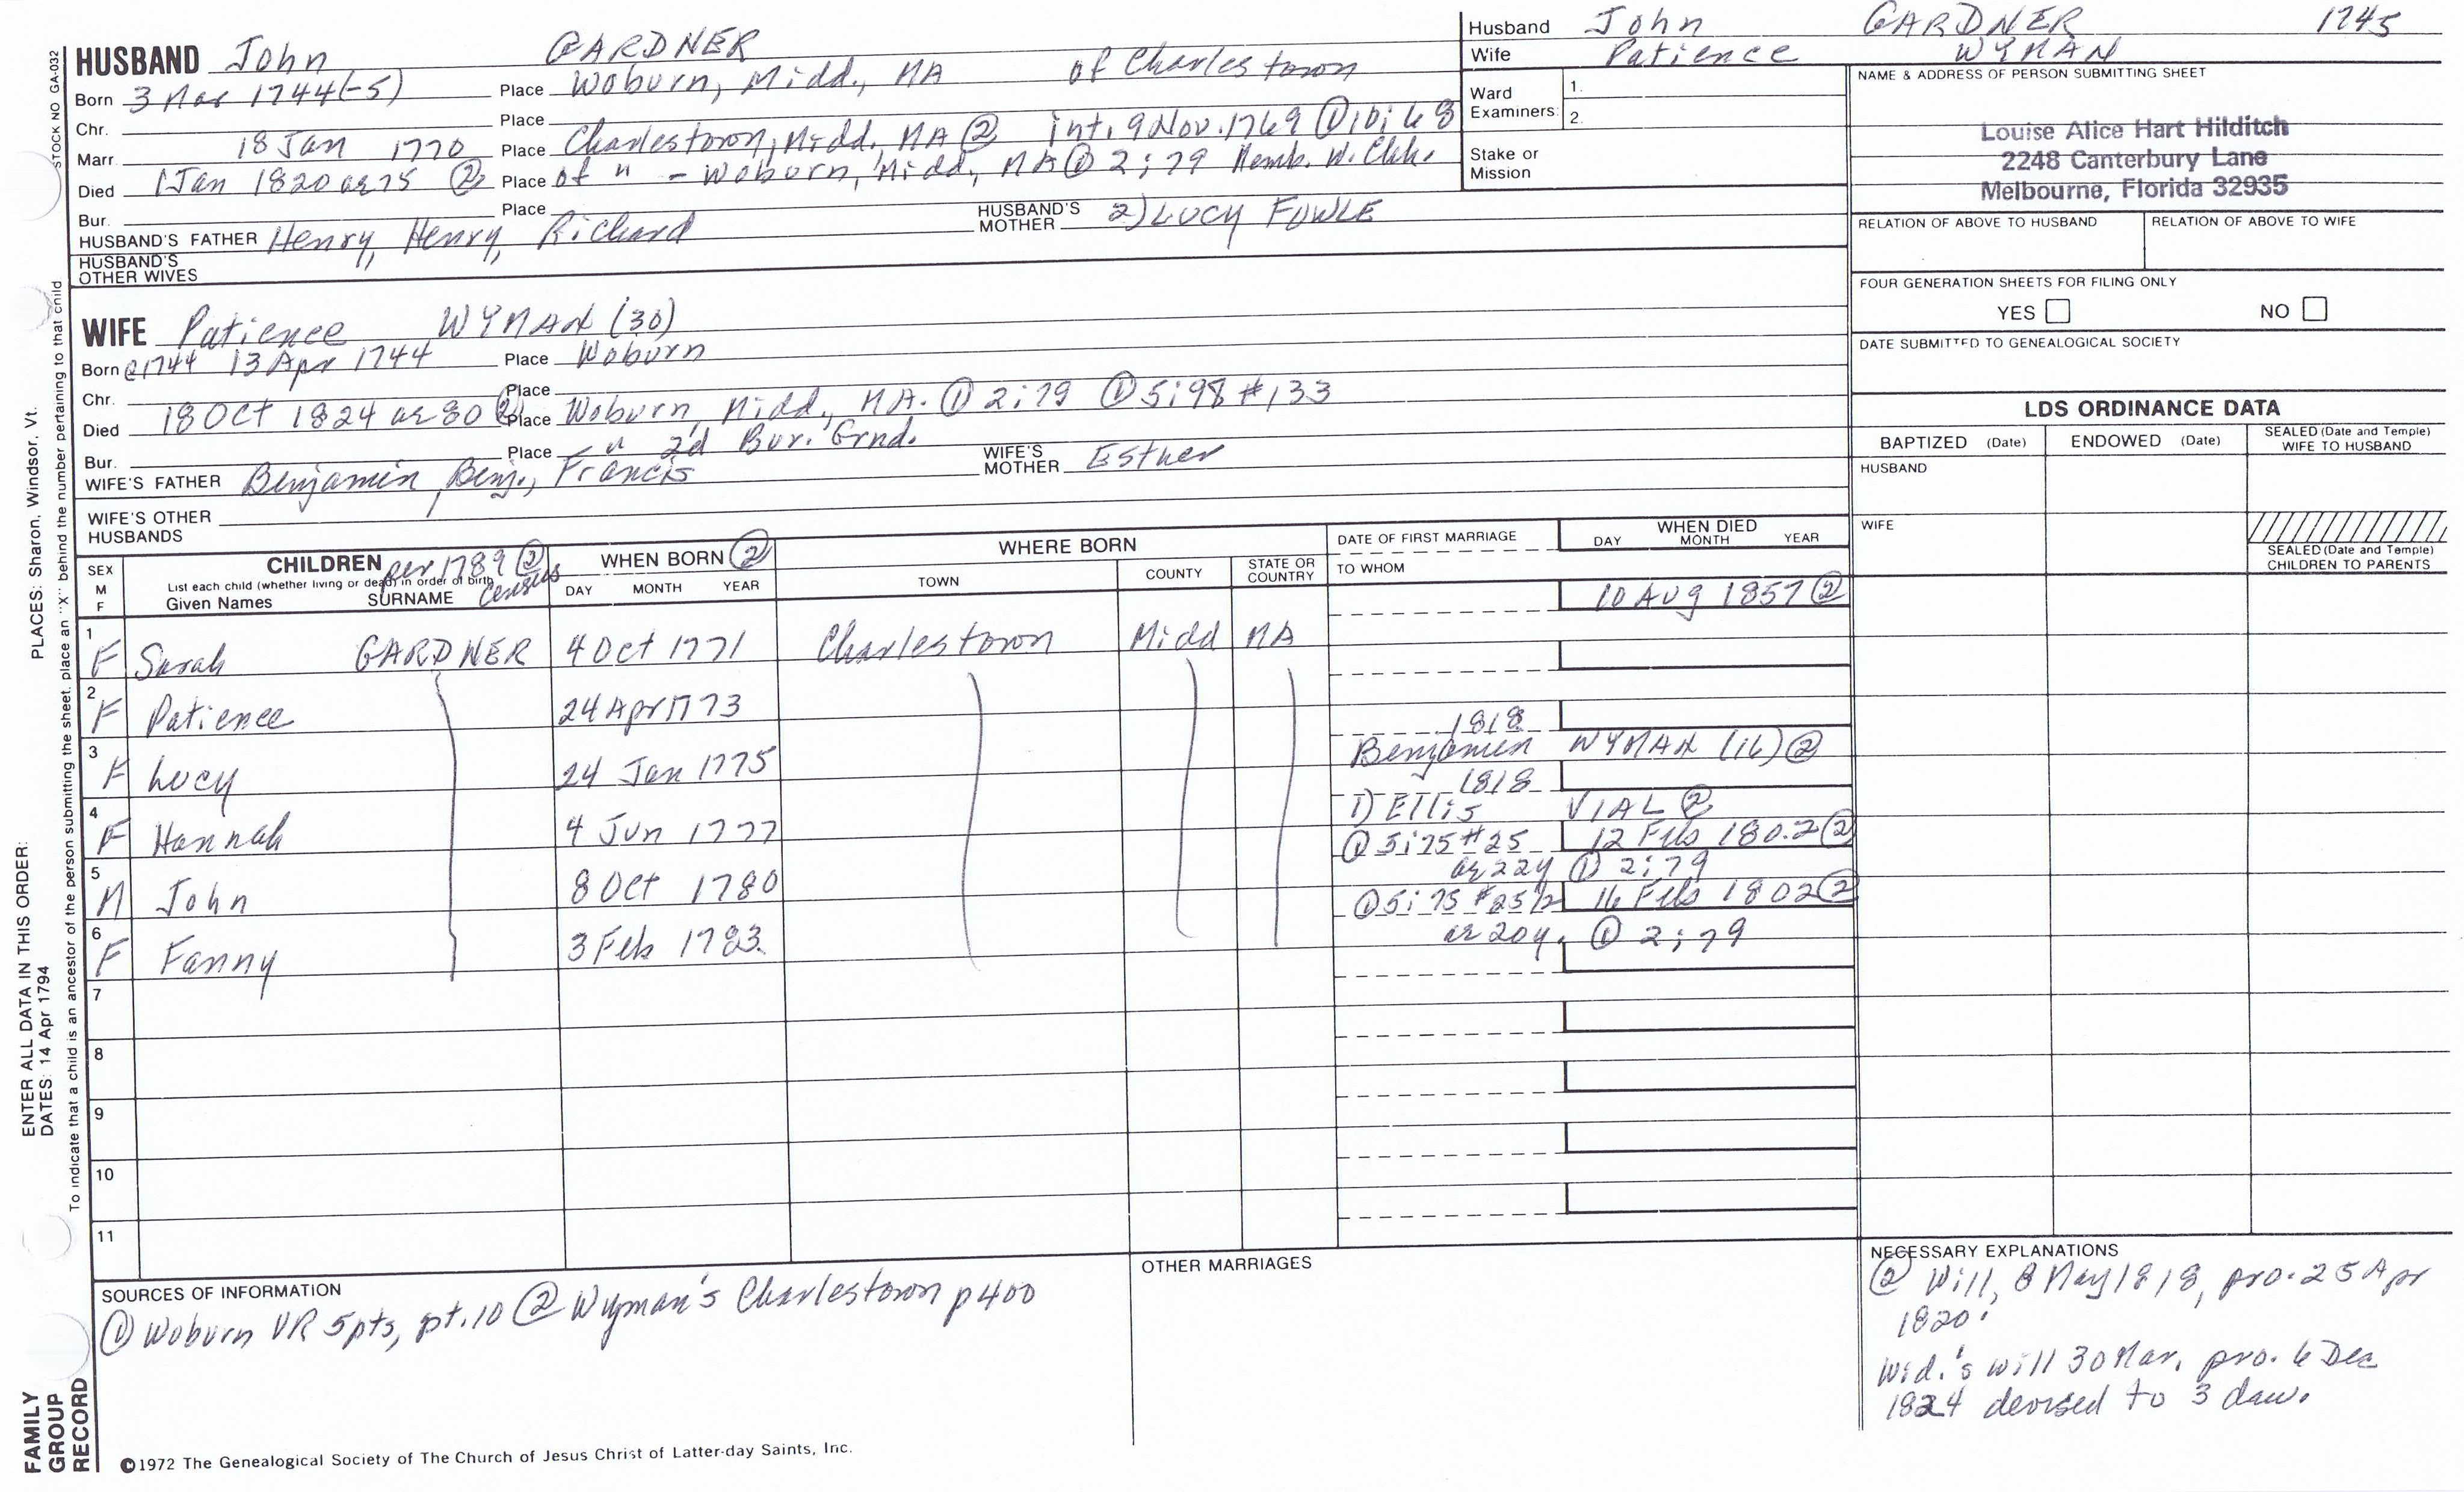 STOCK NO GA-032
HUSBAND John GARDNER
Born 3 Mar 1744(-5) Place Woburn, Midd., MA of Charlestown
Chr. Place
Marr. 18 Jan 1770 Place Charlestown, Midd. MA ② int. 9 Nov. 1769 ① 10:68
Died 1 Jan 1820 ae 75 ② Place of " - Woburn, Midd, MA ① 2:79 Memb. W. Chh.
Bur. Place
HUSBAND'S FATHER Henry, Henry, Richard HUSBAND'S MOTHER 2) Lucy FOWLE
HUSBAND'S OTHER WIVES
Husband John GARDNER 1745
Wife Patience WYMAN
Ward Examiners: 1.
2.
Stake or Mission
NAME & ADDRESS OF PERSON SUBMITTING SHEET
Louise Alice Hart Hilditch
2248 Canterbury Lane
Melbourne, Florida 32935
RELATION OF ABOVE TO HUSBAND RELATION OF ABOVE TO WIFE
FOUR GENERATION SHEETS FOR FILING ONLY
YES NO
DATE SUBMITTED TO GENEALOGICAL SOCIETY
WIFE Patience WYMAN (30)
Born @1744 13 Apr 1744 Place Woburn
Chr. Place
Died 18 Oct 1824 ae 80 ② Place Woburn, Midd., MA. ① 2:79 ① 5:98 #133
Bur. Place - " 2d Bur. Grnd.
WIFE'S FATHER Benjamin, Benj., Francis WIFE'S MOTHER Esther
WIFE'S OTHER HUSBANDS
LDS ORDINANCE DATA
BAPTIZED (Date) ENDOWED (Date) SEALED (Date and Temple) WIFE TO HUSBAND
HUSBAND
WIFE
SEALED (Date and Temple) CHILDREN TO PARENTS
SEX M F
CHILDREN per 1789 ② Census
List each child (whether living or dead) in order of birth
Given Names SURNAME
WHEN BORN ②
DAY MONTH YEAR
WHERE BORN
TOWN COUNTY STATE OR COUNTRY
DATE OF FIRST MARRIAGE
TO WHOM
WHEN DIED
DAY MONTH YEAR
10 Aug 1857 ②
1 F Sarah GARDNER 4 Oct 1771 Charlestown Midd MA
2 F Patience 24 Apr 1773
1818
3 F Lucy 24 Jan 1775 Benjamin WYMAN (16) ②
1818
4 F Hannah 4 Jun 1777 1) Ellis VIAL ②
① 5:75 #25 12 Feb 1802 ②
5 M John 8 Oct 1780 ae 22y ① 2:79
① 5:75 #25½ 16 Feb 1802 ②
6 F Fanny 3 Feb 1783 ae 20y. ① 2:79
7
8
9
10
11
SOURCES OF INFORMATION
① Woburn VR 5pts, pt.10 ② Wyman's Charlestown p400
OTHER MARRIAGES
NECESSARY EXPLANATIONS
② Will, 8 May 1818, pro. 25 Apr
1820.
Wid.'s will 30 Mar. pro. 6 Dec
1824 devised to 3 dau.
©1972 The Genealogical Society of The Church of Jesus Christ of Latter-day Saints, Inc.
FAMILY
GROUP
RECORD
ENTER ALL DATA IN THIS ORDER:
DATES: 14 Apr 1794
PLACES: Sharon, Windsor, Vt.
To indicate that a child is an ancestor of the person submitting the sheet, place an "X" behind the number pertaining to that child